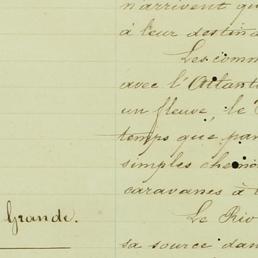 n'arrivent qu
à leur destina
Les comm
avec l'Atlant
un fleuve, le
temps que par
simples chemi
caravanes à
Grande.
Le Rio
sa source dan